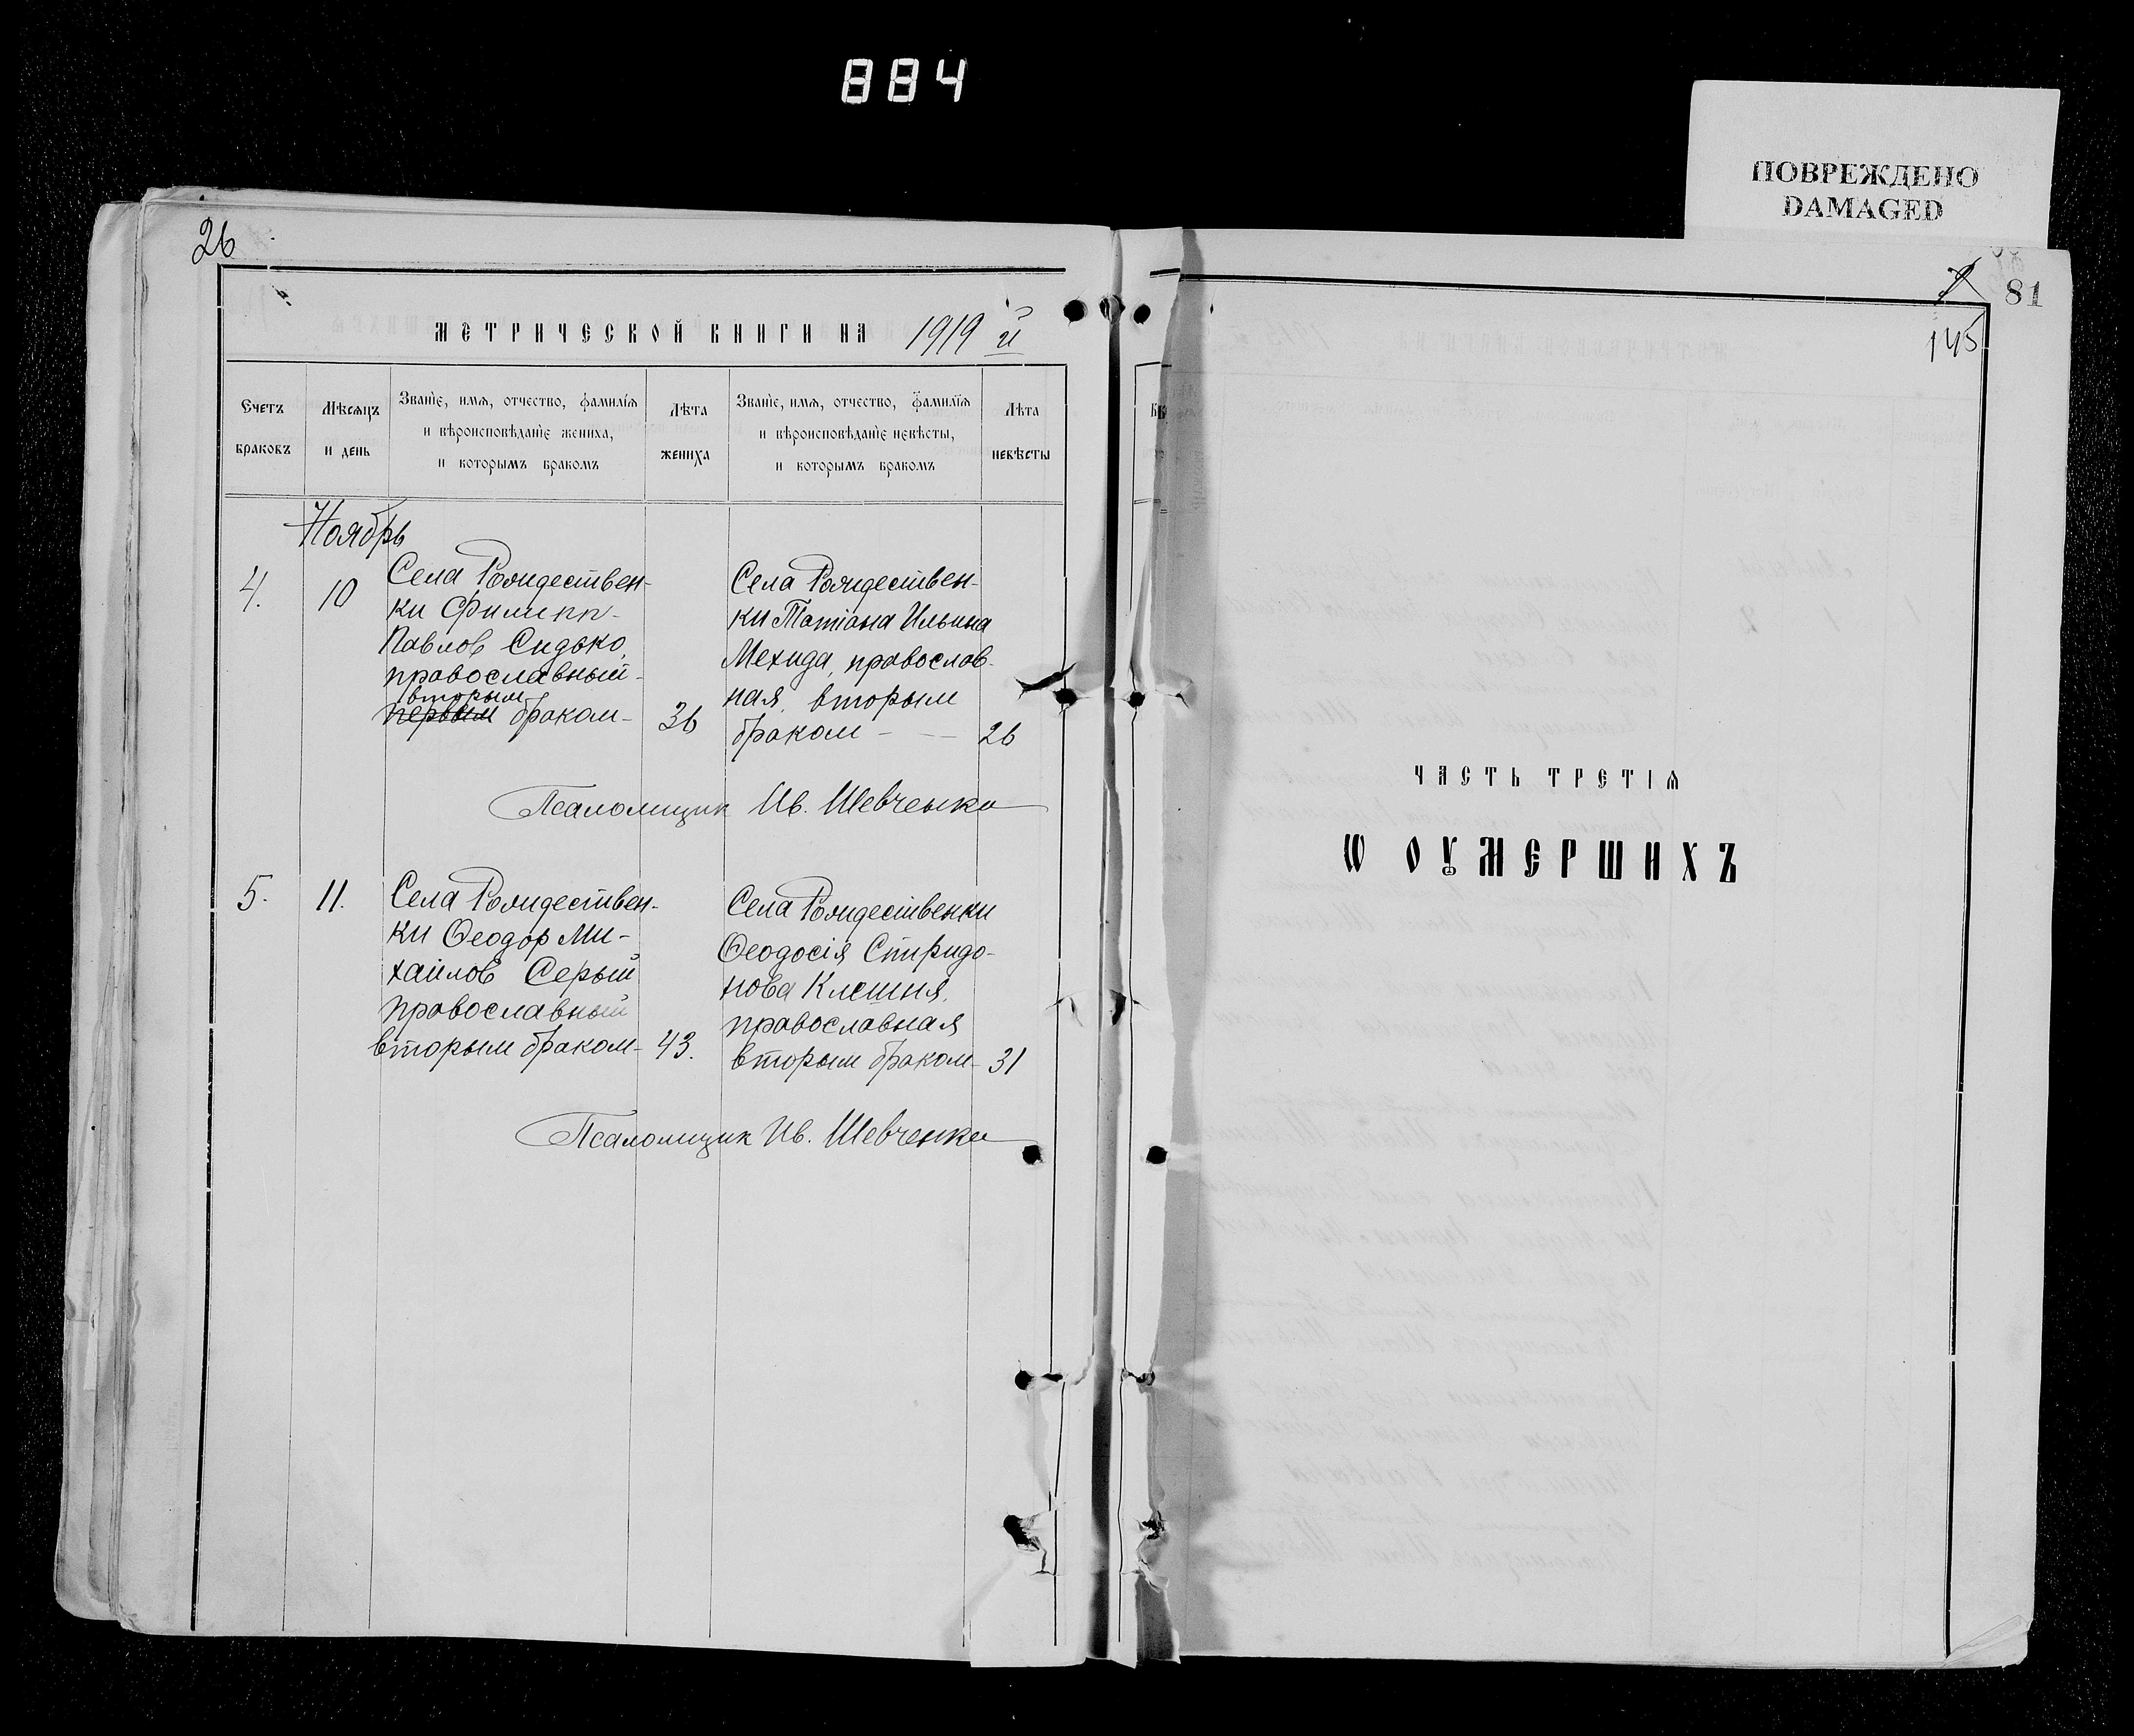 884
ПОВРЕЖДЕНО
DAMAGED
26
МЕТРИЧЕСКОЙ КНИГИ НА 1919 й
Счетъ браковъ
Мѣсяцъ и день
Званїе, имя, отчество, фамилїя
и вѣроисповѣданїе жениха,
и которымъ бракомъ
Лѣта жениха
Званїе, имя, отчество, фамилїя
и вѣроисповѣданїе невѣсты,
и которымъ бракомъ
Лѣта невѣсты
Ноябрь
4. 10
Села Рождествен-
ки Филипп
Павлов Сидько,
православный
вторым
первым браком- 36
Села Рождествен-
ки Татіана Ильина
Мехида, православ-
ная, вторым
браком - 26
Псаломщик Ив. Шевченко
5. 11.
Села Рождествен-
ки Ѳеодор Ми-
хайлов Серый
православный
вторым браком- 43.
Села Рождественки
Ѳеодосія Спиридо-
нова Клешня,
православная
вторым браком- 31
Псаломщик Ив. Шевченко
81
145
ЧАСТЬ ТРЕТІЯ
Ѡ ОУМЕРШИХЪ